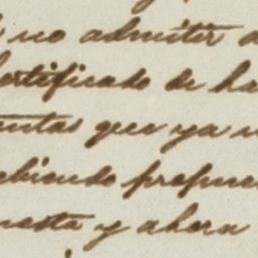 no admitir
ertificado de ha
untas que ya
biendo propues
uesta y ahora